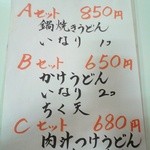 Aセット 850円
鍋焼きうどん
いなり 1コ
Bセット 650円
かけうどん
いなり 2コ
ちく天
Cセット 680円
肉汁つけうどん